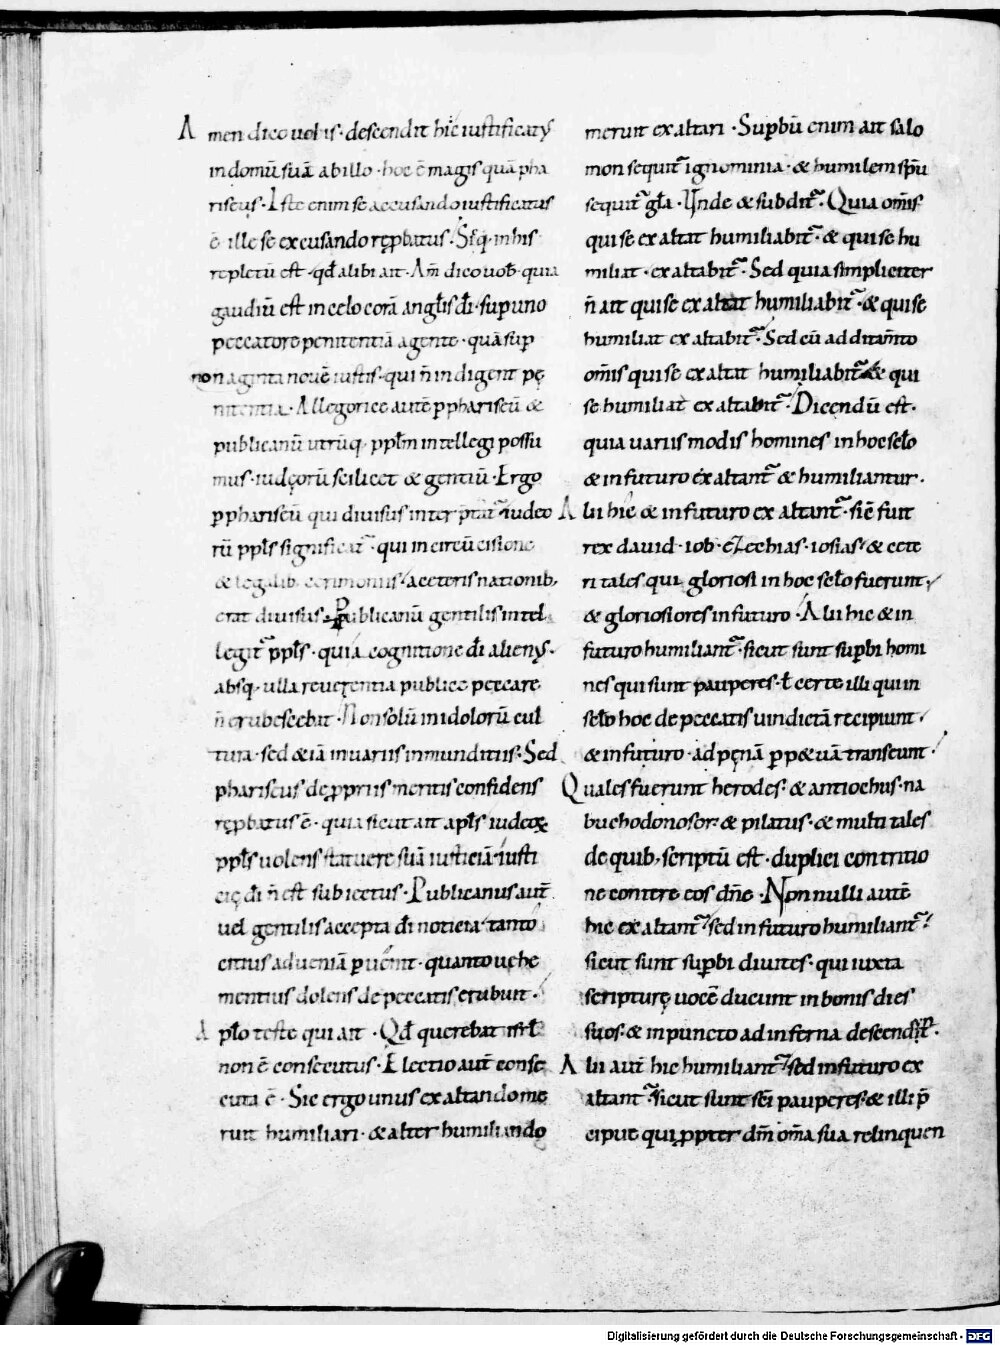 Amen dico uobis · descendit hic iustificat9
in domū suā ab illo · hoc ē magis quā pha
riseus · Iste enim se accusando iustificatus
ē ille se excusando ręp̱batus · Sꝫ q in his
repletū est · qđ alibi ait · Am̄ dico uob̄ · quia
gaudiū est in celo corā angl̄is dī · sup uno
peccatore penitentiā agente · quā sup
nonaginta nouē iustis · qui n̄ indigent pę
nitentia · Allegorice autē p phariseū &
publicanū utrūq; ppl̄m intellegi possu
mus · iudęorū scilicet & gentiū · Ergo
p phariseū qui diuisus interp̄tat᷑ · iudeo
rū ppl̄s significat᷑ · qui in circūcisione
& legalib; cerimoniis / a ceteris nationib;
erat diuisus · Publicanū gentilis intel
legit᷑ ppl̄s · quia a cognitione dī alien9 ·
absq; ulla reuerentia publice peccare
n̄ erubescebat · Non solū in idolorū cul
tura · sed & iā in uariis inmunditiis · Sed
phariseus de p̱priis meritis confidens
ręp̱batus ē · quia sicut ait apl̄s iudeoꝝ
ppl̄s uolens statuere suā iusticiā · iusti
cię dī n̄ est subiectus · Publicanus aut̄
uel gentilis accepta dī noticia / tanto
citius ad ueniā puenit · quanto uehe
mentius dolens de peccatis erubuit ·
Aplo teste qui ait · Qđ querebat isrl̄
non ē consecutus · Electio aut̄ conse
cuta ē · Sic ergo unus exaltando me
ruit humiliari · & alter humiliando
meruit exaltari · Supbū enim ait salo
mon sequit᷑ ignominia · & humilem sp̄u
sequit᷑ gl̄a · Unde & subdit᷑ · Quia om̄is
qui se exaltat humiliabit᷑ · & qui se hu
miliat · exaltabit᷑ · Sed quia simpliciter
n̄ ait qui se exaltat humiliabit᷑ · & qui se
humiliat exaltabit᷑ · Sed cū additam̄to
om̄is qui se exaltat humiliabit᷑ & qui
se humiliat exaltabit᷑ · Dicendū est ·
quia uariis modis homines in hoc sc̄lo
& in futuro exaltant᷑ & humiliantur ·
Alii hic & in futuro exaltant᷑ · sic fuit
rex dauid · iob · ezechias · iosias · & cete
ri tales qui gloriosi in hoc sc̄lo fuerunt /
& gloriosiores in futuro · Alii hic & in
futuro humiliant᷑ · sicut sunt supbi homi
nes qui sunt pauperes · ł certe illi qui in
sc̄lo hoc de peccatis uindictā recipiunt /
& in futuro · ad pęnā p̱p&uā transeunt ·
Quales fuerunt herodes · & antiochus · na
buchodonosor · & pilatus · & multi tales
de quib; scriptū est · duplici contritio
ne contere eos dn̄e · Non nulli autē
hic exaltant᷑ / sed in futuro humiliant᷑ /
sicut sunt supbi diuites · qui iuxta
scripturę uocē ducunt in bonis dies
suos · & in puncto ad inferna descendunt ·
Alii aut̄ hic humiliant᷑ / sed in futuro ex
altant᷑ · sicut sunt sc̄i pauperes · & illi p̄
cipue qui p̱pter dm̄ om̄a sua relinquen
Digitalisierung gefördert durch die Deutsche Forschungsgemeinschaft - DFG